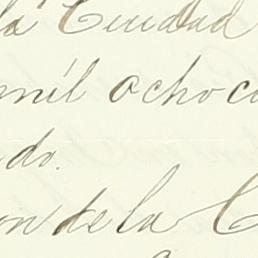 la Ciudad
mil ochoc
do.
on de la C